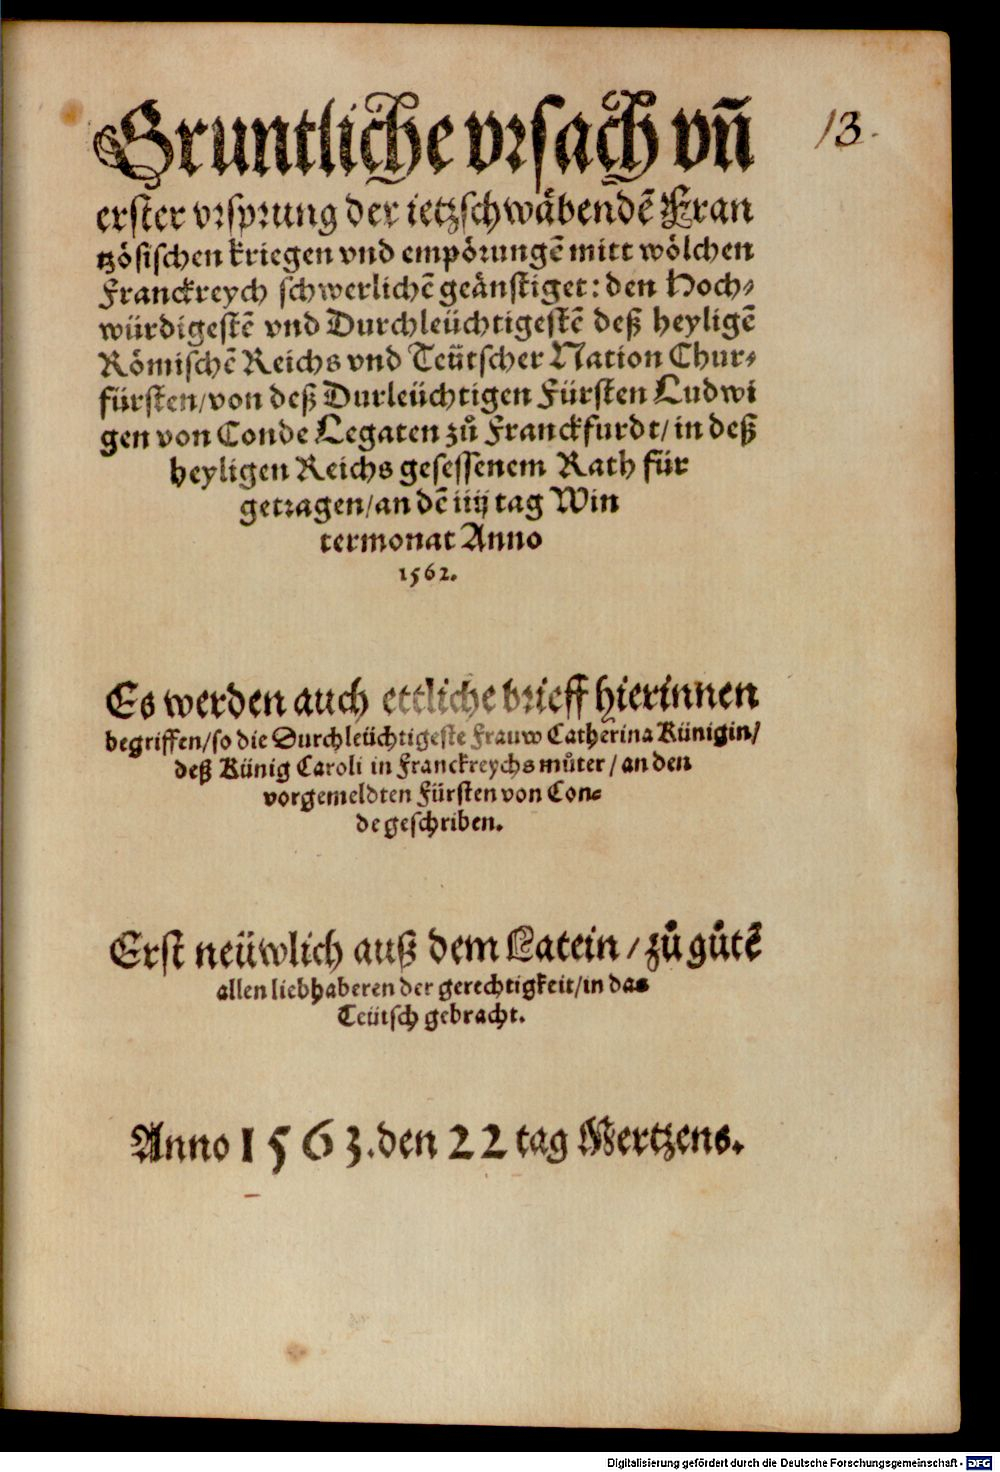 Gruntliche vrsach vñ
13.
erster vrsprung der ietzschwäbendẽ Fran
tzösischen kriegen vnd empörungẽ mitt wölchen
Franckreych schwerlichẽ geänstiget: den Hoch-
würdigestẽ vnd Durchleüchtigestẽ deß heyligẽ
Römischẽ Reichs vnd Teütscher Nation Chur-
fürsten/von deß Durleüchtigen Fürsten Ludwi
gen von Conde Legaten zů Franckfurdt/in deß
heyligen Reichs gesessenem Rath für
getragen/an dẽ iiij tag Win
termonat Anno
1562.
Es werden auch ettliche brieff hierinnen
begriffen/so die Durchleüchtigeste Frauw Catherina Künigin/
deß Künig Caroli in Franckreychs můter/an den
vorgemeldten Fürsten von Con-
de geschriben.
Erst neüwlich auß dem Latein/zů gůtẽ
allen liebhaberen der gerechtigkeit/in das
Teütsch gebracht.
Anno 1563.den 22 tag Mertzens.
Digitalisierung gefördert durch die Deutsche Forschungsgemeinschaft - DFG